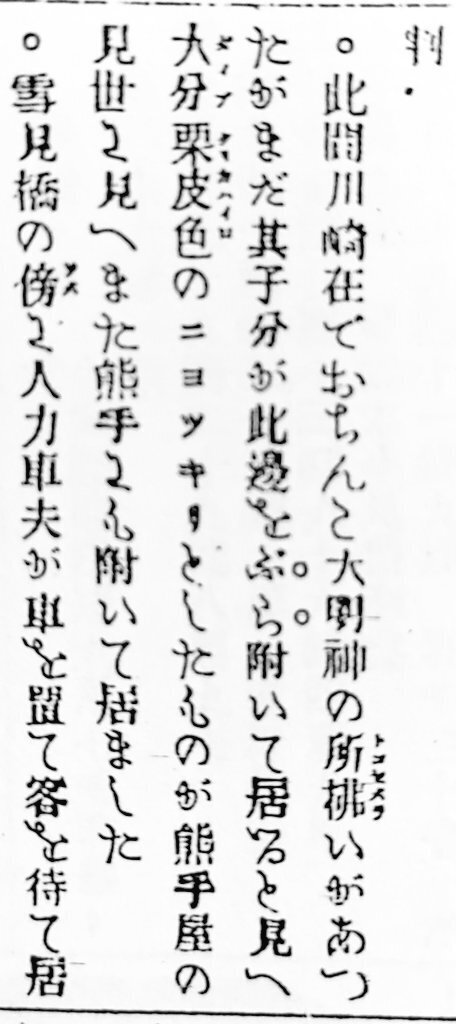 判.
○此間川崎在でおちんこ大明神の所挑いがあつ
たがまだ其子分が此邊をぶら附いて居ると見へ
大分栗皮色のニヨツキリとしたものが熊手屋の
見世に見へまた熊手にも附いて居ました
○雪見橋の傍に人力車夫が車を置て客を待て居